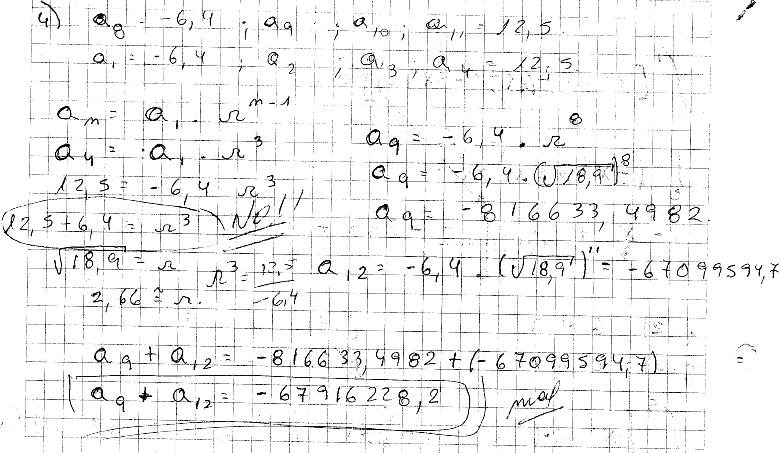 4) a₈ = -6,4 ; a₉ ; a₁₀ ; a₁₁ = 12,5
a₁ = -6,4 ; a₂ ; a₃ ; a₄ = 12,5
aₙ = a₁ . r^(n-1)
a₄ = a₁ . r³
12,5 = -6,4 r³
12,5 + 6,4 = r³ No!!
√18,9 = r
2,66 ≅ r.
r³ = 12,5 / -6,4
a₉ = -6,4 . r⁸
a₉ = -6,4 . (√18,9)⁸
a₉ = -816633,4982
a₁₂ = -6,4 . (√18,9)¹¹ = -67099594,7
a₉ + a₁₂ = -816633,4982 + (-67099594,7) =
a₉ + a₁₂ = -67916228,2 mal